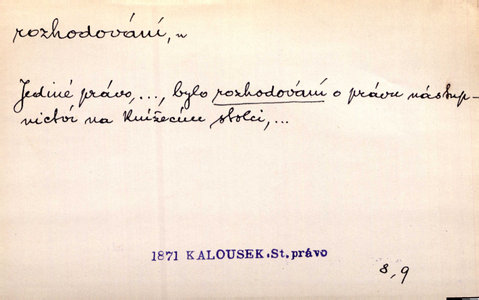 rozhodování, n
Jediné právo, ..., bylo rozhodování o právu nástup-
nictví na knížecím stolci, ...
1871 KALOUSEK.St.právo
8, 9